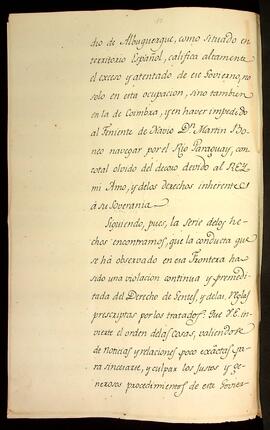 dio de Albuquerque, como situado en
territorio Español, califica altamente
el exceso y atentado de ese Govierno, no
solo en esta ocupacion, sino tambien
en la de Coimbra, y en haver impedido
al Teniente de Navio Dn. Martin Bo-
neo navegar por el Rio Paraguay, con
total olvido del decoro devido al REY
mi Amo, y delos derechos inherentes
á su Soverania.
Siguiendo, pues, la serie delos he-
chos encontramos, que la conducta que
se há observado en esa Frontera ha
sido una violacion continua y premedi-
tada del Derecho de Gentes, y delas Reglas
prescriptas por los tratados: Que V.E. in-
vierte el orden delas cosas, valiendose
de noticias y relaciones poco exâctas pa-
ra sincerarse, y culpar los justos y ge-
nerosos procedimientos de este Govier-